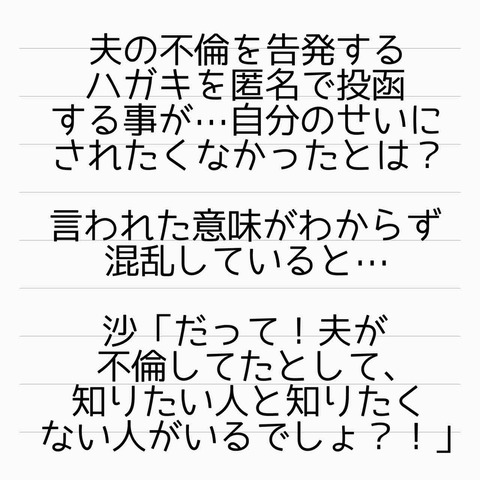 夫の不倫を告発する
ハガキを匿名で投函
する事が…自分のせいに
されたくなかったとは？
言われた意味がわからず
混乱していると…
沙「だって！夫が
不倫してたとして、
知りたい人と知りたく
ない人がいるでしょ？！」